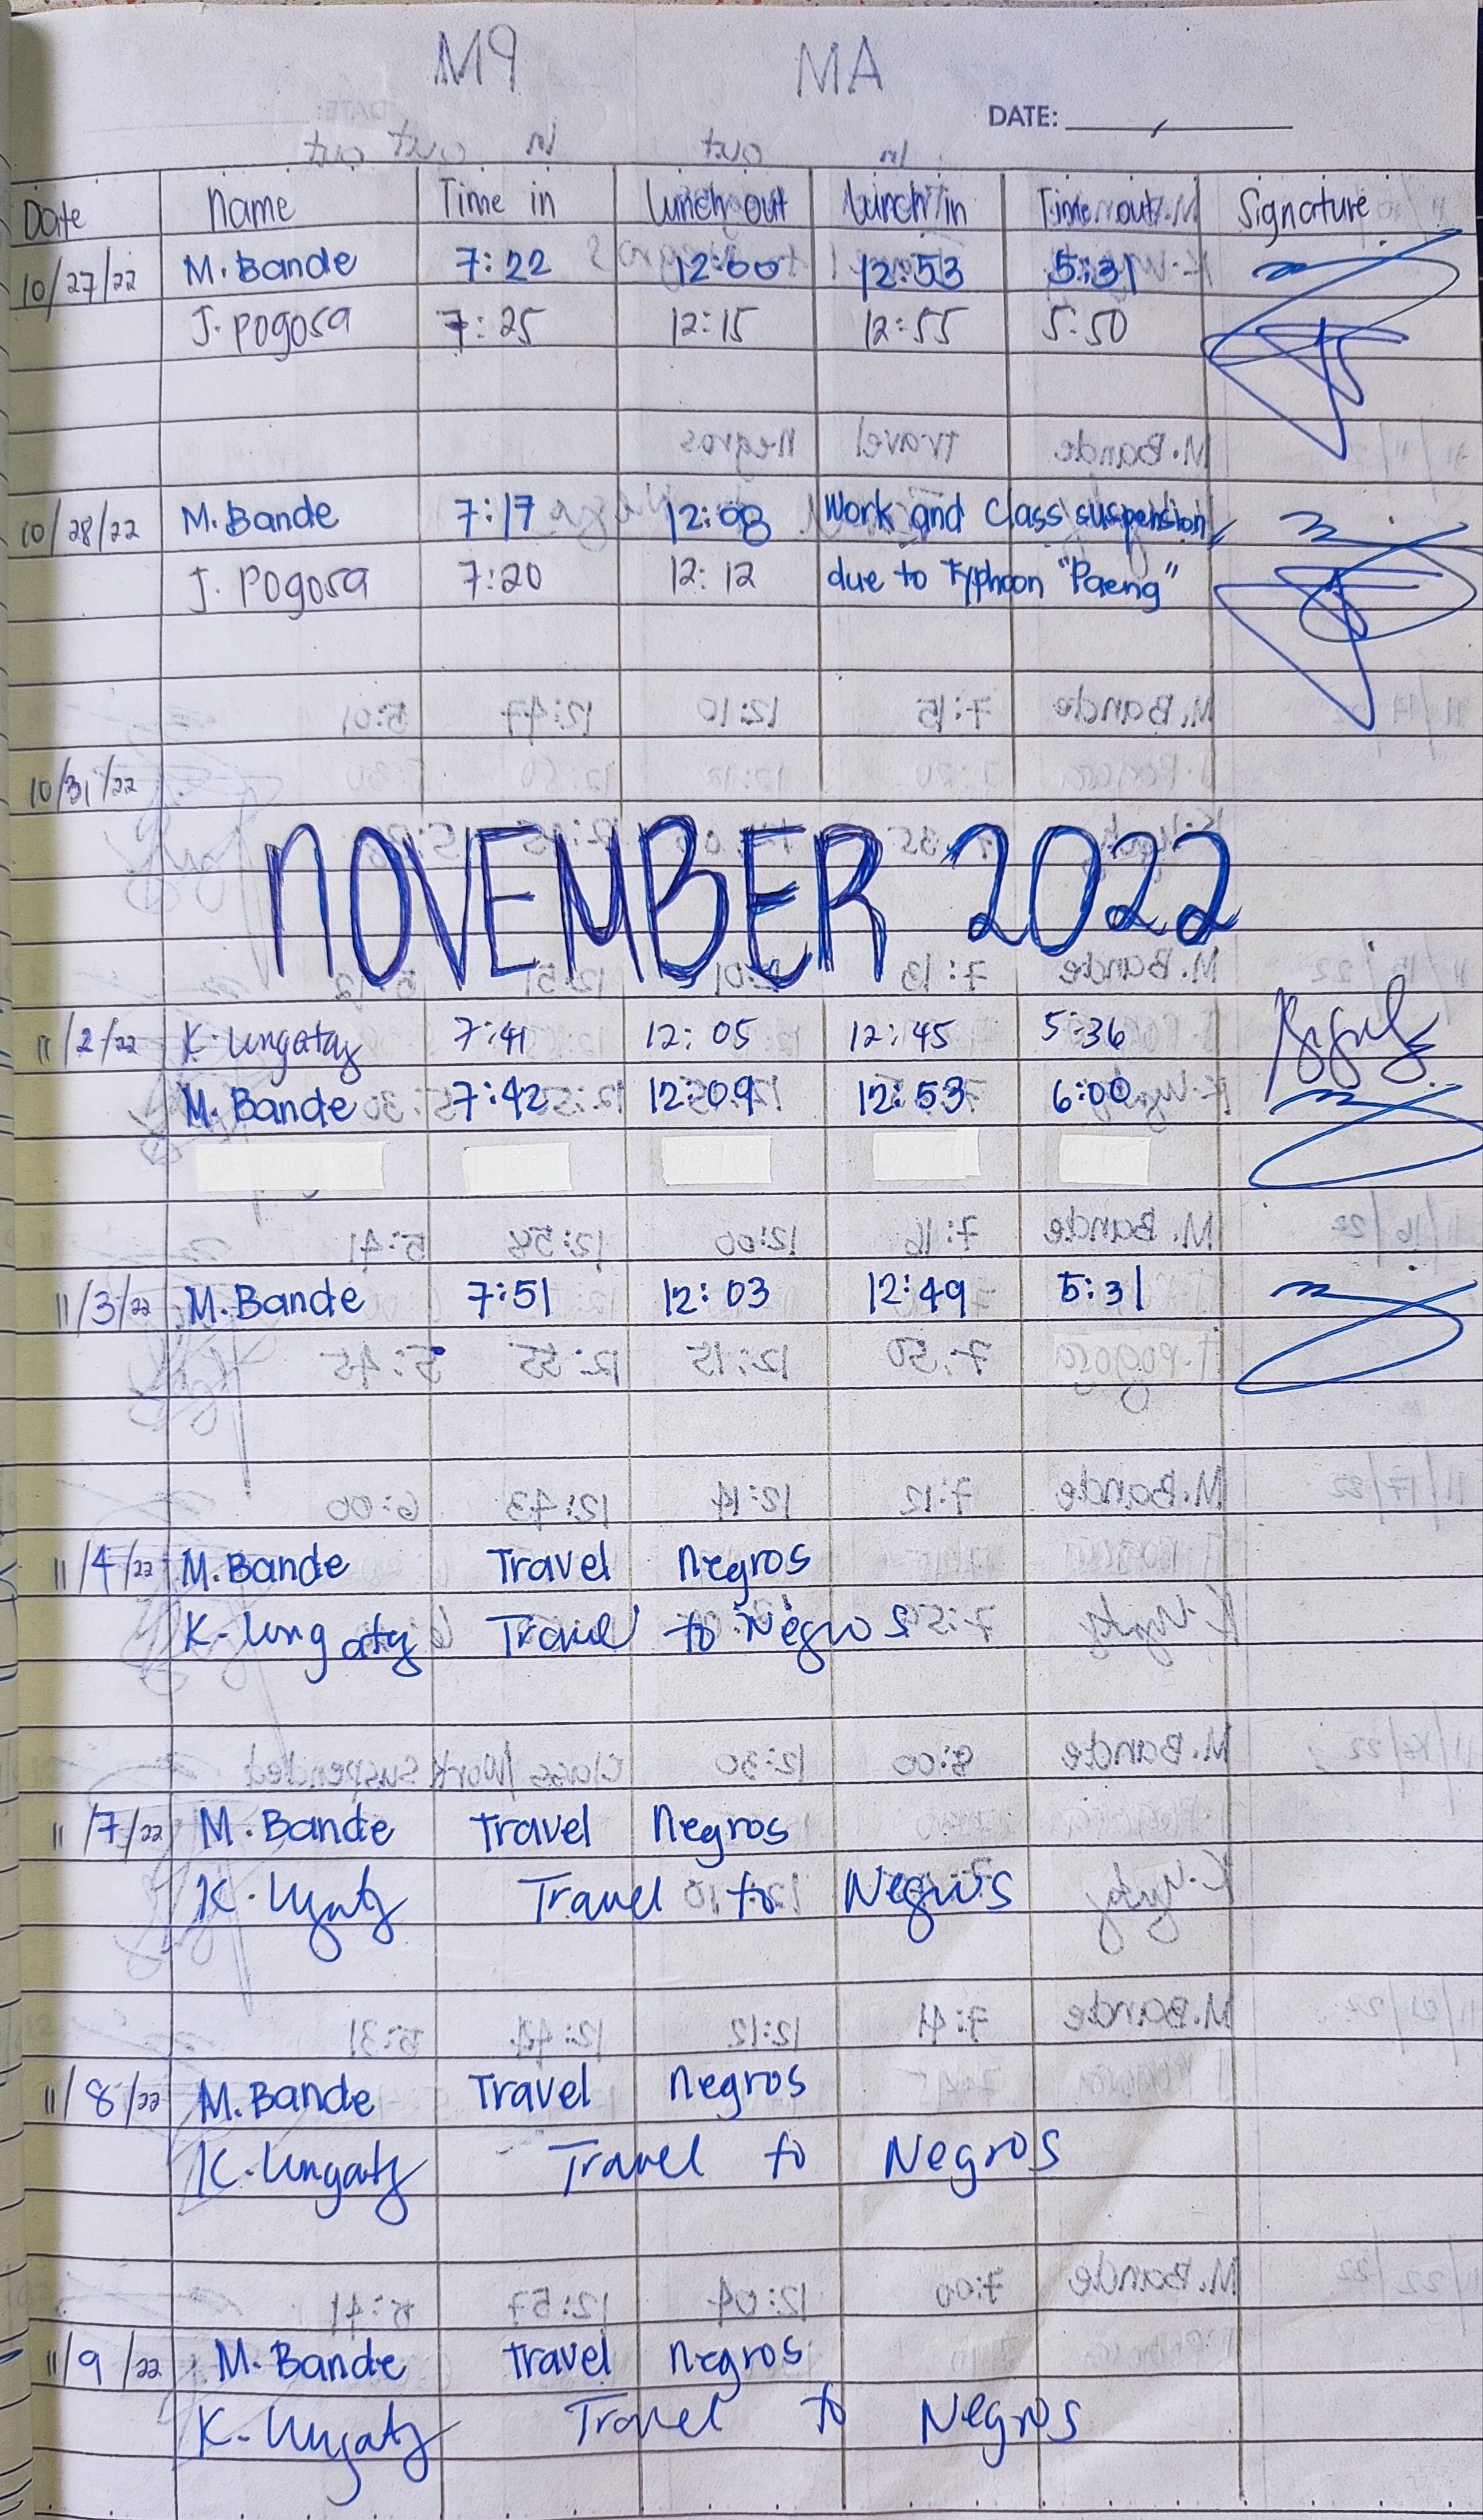 M9 MA
DATE:
Date Name Time in Lunch out Lunch in Time out Signature
10/27/22 M. Bande 7:22 12:00 12:53 5:31
J. Pogosa 7:25 12:15 12:55 5:50
10/28/22 M. Bande 7:17 12:08 Work and Class suspension
J. Pogosa 7:20 12:12 due to Typhoon "Paeng"
10/31/22
NOVEMBER 2022
11/2/22 K. Ungatay 7:41 12:05 12:45 5:36
M. Bande 7:42 12:09 12:53 6:00
11/3/22 M. Bande 7:51 12:03 12:49 5:31
11/4/22 M. Bande Travel Negros
K. Travel to Negros
11/7/22 M. Bande Travel Negros
K. Travel to Negros
11/8/22 M. Bande Travel Negros
K. Travel to Negros
11/9/22 M. Bande Travel Negros
K. Travel to Negros